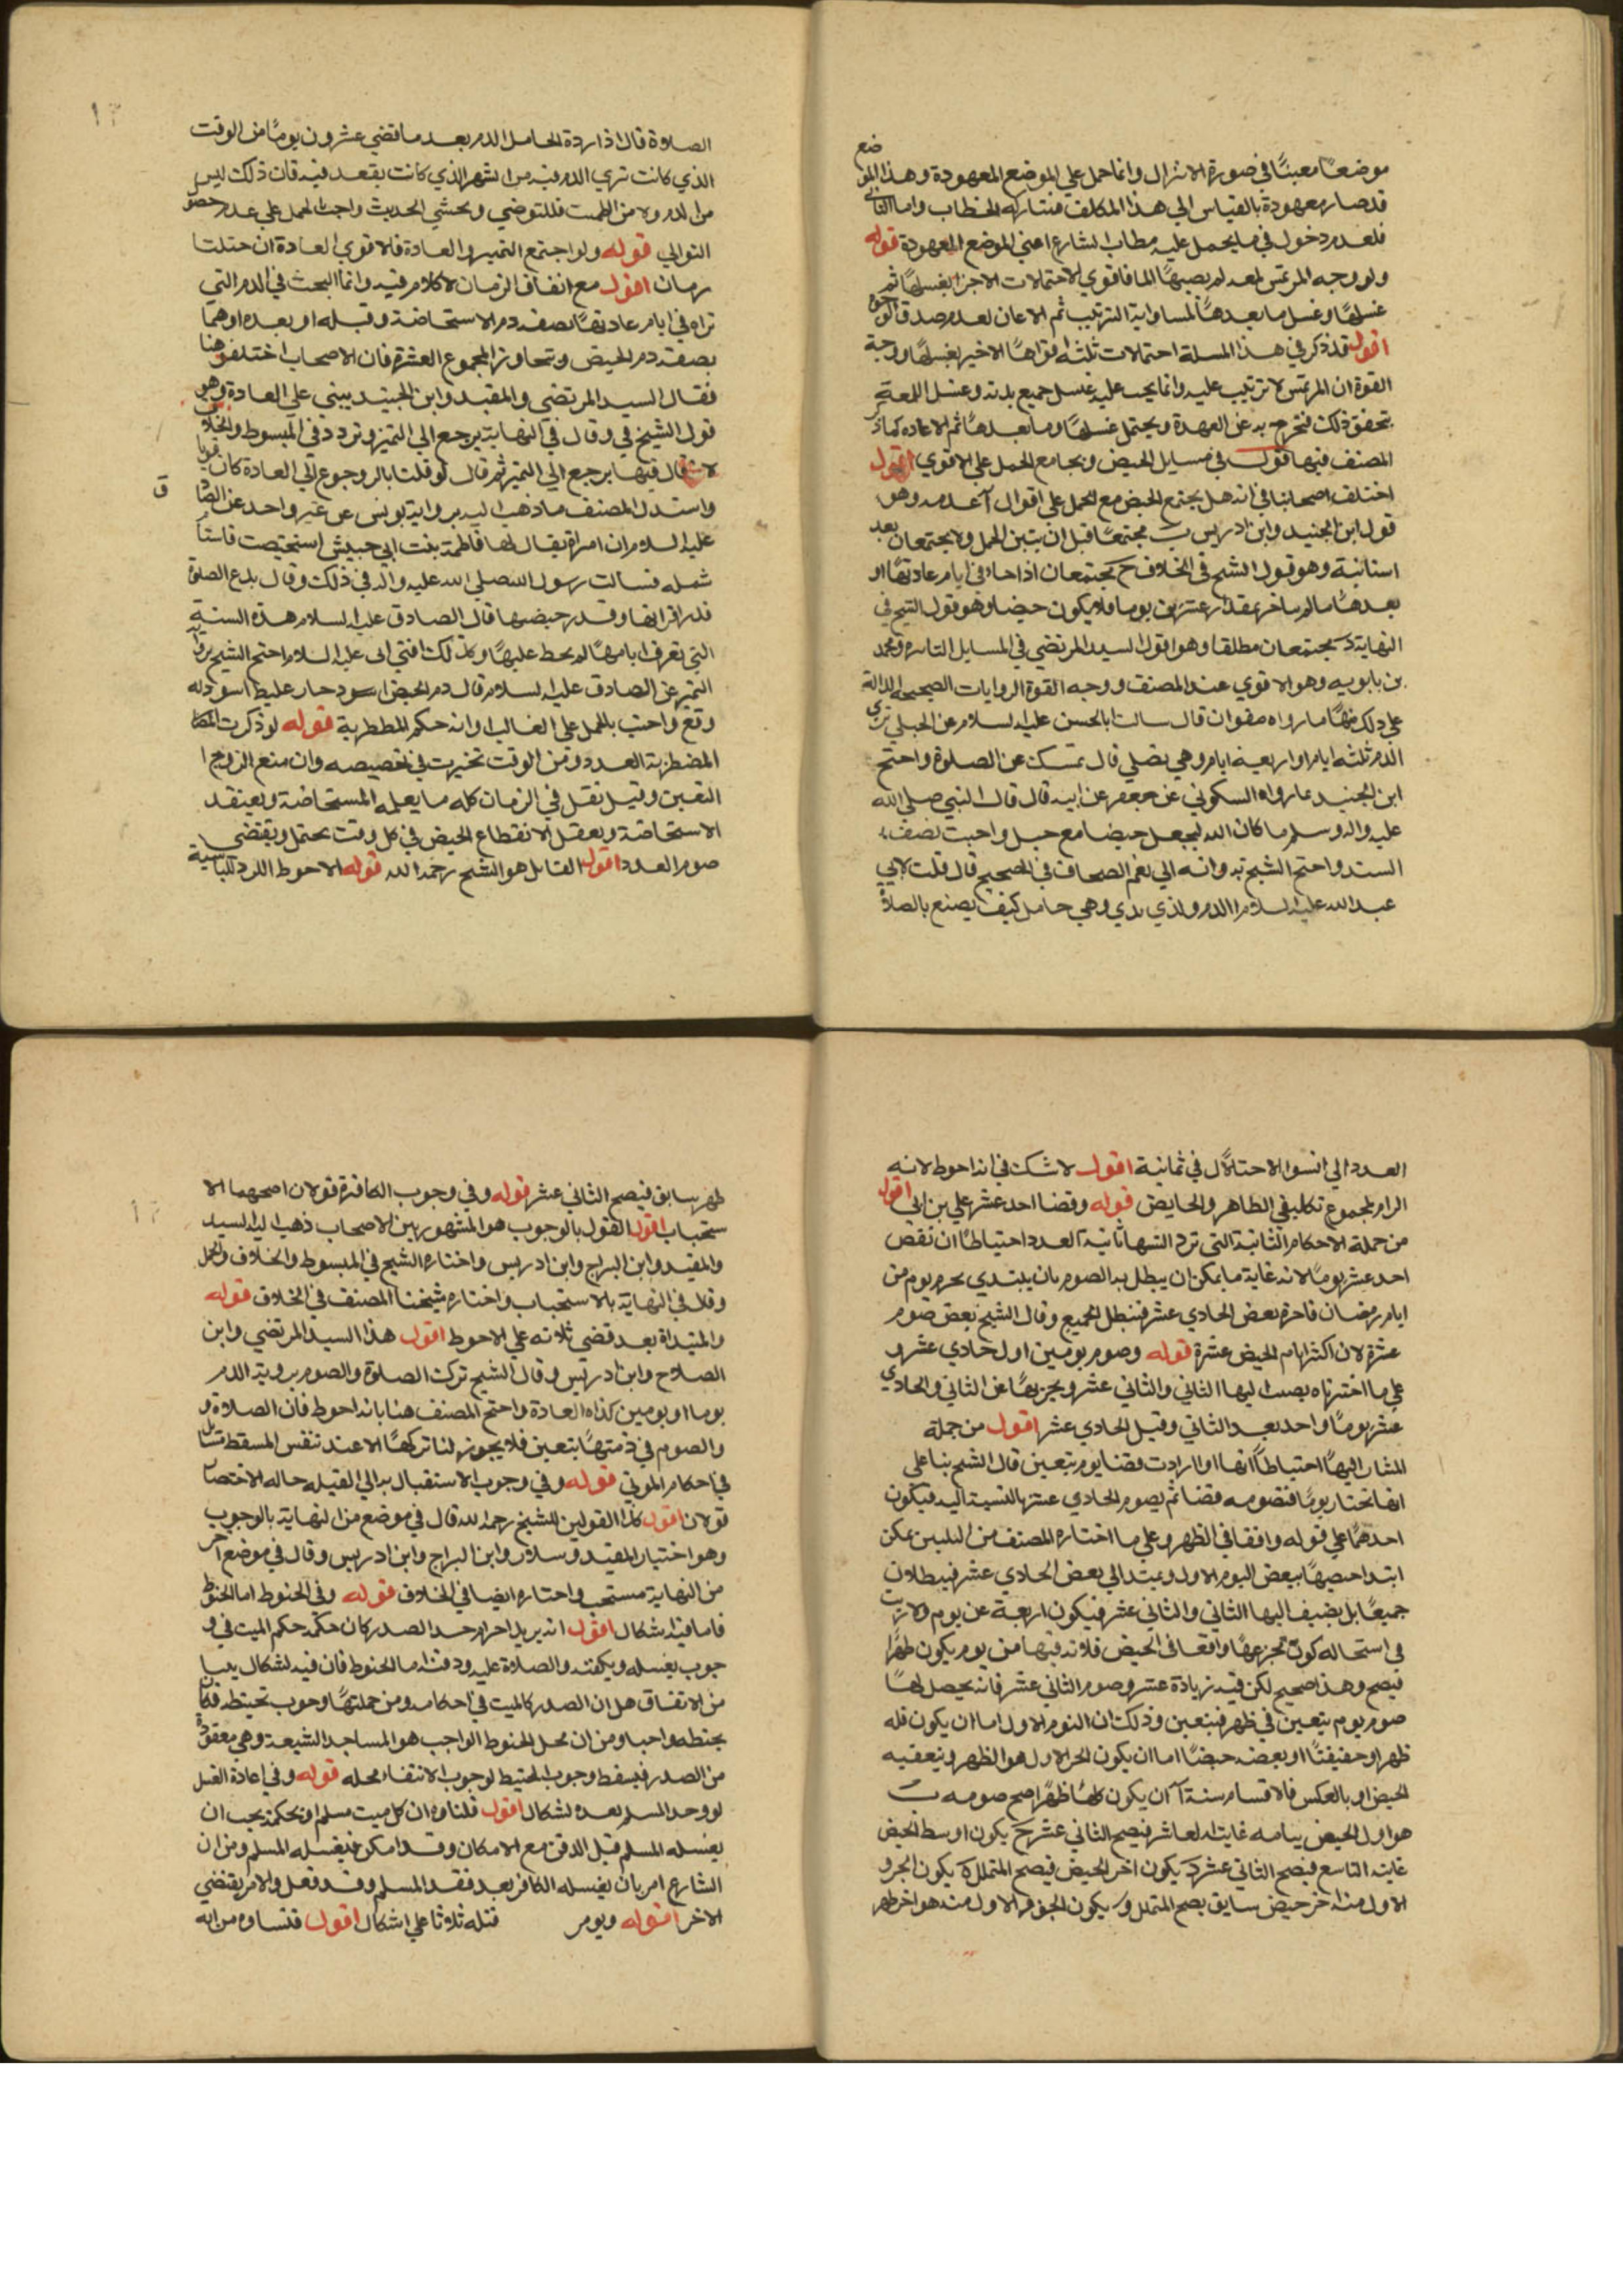 موضعًا معينًا في صورة الانزال وانما حمل علي الموضع المعهودة وهذا الموضع
قد صار معهودة بالقياس الي هذا المكلف فيتناوله الخطاب واما الثاني
فلعدم دخول في ما يحمل عليه خطاب الشارع اعني الموضع المعهودة قوله
ولو وجه المرتمس لمعه لم يصبها الما فاقوي الاحتمالات الاجزا بغسلها ثم
غسلها وغسل ما بعدها لمساواته الترتيب ثم الاعاده لعدم صدق الوحدة
اقول قد ذكر في هذا المسلة احتمالات ثلثه اقواها الاخير بغسلها ووجه
القوة ان المرتمس لا ترتيب عليه وانما يجب عليه غسل جميع بدنه وغسل اللمعة
تحقق ذلك فتخرج به عن العهدة ويحتمل غسلها وما بعدها ثم الاعاده كما ذكر
المصنف فيها قوله في مسايل الحيض ويجامع الحمل علي الاقوي اقول
اختلف اصحابنا في انه هل يجتمع الحيض مع الحمل علي اقوال آ عدمه وهو
قول ابن الجنيد وابن ادريس ب يجتمعا قبل ان يتبين الحمل ولا يجتمعان بعد
استبانته وهو قول الشيخ في الخلاف ح يجتمعان اذا جاء في ايام عادتها او
بعدها ما لم يتاخر بمقدار عشرين يوما فلا يكون حيضا وهو قول الشيخ في
النهاية د يجتمعان مطلقا وهو قول السيد المرتضي في المسايل الناصريه ومحمد
بن بابويه وهو الاقوي عند المصنف ووجه القوة الروايات الصحيحة الدالة
علي ذلك منها ما رواه صفوان قال سالت ابا الحسن عليه السلام عن الحبلي تري
الدم ثلثه ايام او اربعة ايام وهي تصلي قال تمسك عن الصلوة واحتج
ابن الجنيد بما رواه السكوني عن جعفر عن ابيه قال قال النبي صلي الله
عليه واله وسلم ما كان الله ليجعل حيضا مع حبل واجيب بضعف
السند واحتج الشيخ بروايته الي نعم الصحاف في الصحيح قال قلت لابي
عبد الله عليه السلام الدم ولدي تري وهي حامل كيف يصنع بالصلاة
الصلاة قال اذا ردة الحامل الدم بعد ما تمضي عشرون يومًا من الوقت
الذي كانت تري الدم فيه من الشهر الذي كانت يقعد فيه فان ذلك ليس
من الدم ولا من الطمث فللتوضي وتحشي الحديث واجب لحمل علي عدم حصو
التوالي قوله ولو اجتمع التميز والعادة فالاقوي العادة ان اختلتا
زمان اقول مع اتفاق الزمان لا كلام فيه وانما البحث في الدم التي
تراه في ايام عادتها بصفه دم الاستحاضة وقبله او بعده اوهما
بصفه دم الحيض وتجاوز المجموع العشرة فان الاصحاب اختلفو هنا
فقال السيد المرتضي والمفيد وابن الجنيد يبني علي العادة وهو
قول الشيخ في وقال في النهاية يرجع الي التميز وتردد في المبسوط والخلاف
لانه قال فيها يرجع الي التميز ثم قال لو قلت بالرجوع الي العادة كان قويا
واستدل المصنف ما ذهب اليه برواية يونس عن غير واحد عن الصادق
عليه السلام ان امراة يقال لها فاطمة بنت ابي حبيش استحيضت فاستا
شمله فسالت رسول الله صلي الله عليه واله في ذلك وقال بدع الصلوة
قدر اقرائها وقدر حيضها قال الصادق عليه السلام هذه السنة
التي تعرف ايامها لم يحط عليها وكذلك افتي ابي عليه السلام احتج الشيخ بروا
التميز عن الصادق عليه السلام قال دم الحيض اسود حار عليظ اسود له
وقع واجيب بالحمل علي الغالب او انه حكم المططربة قوله لو ذكرت
المضطربة العدد دون الوقت تخيرت في تخصيصه وان منع الزوج ا
التعين وقيل تعمل في الزمان كله ما يعمله المستحاضة وتعتقد
الاستحاضة وتغتسل الانقطاع الحيض في كل وقت يحتمل وتقضي
صوم العدد اقول القايل هو الشيخ رحمه الله قوله الاحوط الرد للناسية
العدد الي اسوا الاحتلال في ثمانية اقول لا شك في انه احوط لانه
الزام لمجموع تكليفي الطاهر والحايض قوله وقضا احد عشر علي بن ابي اقول
من جملة الاحكام الثانية التي ترد الشهاناينة العدد احتياطًا ان تقض
احد عشر يومًا لانه غاية ما يمكن ان يبطل به الصوم بان يبتدي بحر يوم من
ايام رمضان فاخره بعض الحادي عشر فيبطل الجميع وقال الشيخ بعض صوم
عشرة لان اكثر ايام الحيض عشرة قوله وصوم يومين اول حادي عشر و
علي ما اخترناه يضيف اليها الثاني والثاني عشر ويجزيها عن الثاني والحادي
عشر يومًا واحد بعد الثاني وقبل الحادي عشر اقول من جملة
المشار اليها احتياطًا انها اذا ارادت قضا يوم بتعين قال الشيخ بنا علي
انها تختار يومًا فتصومه قضا ثم يصوم الحادي عشر بالنسبة اليه فيكون
احدهما علي قوله واقعا في الظهر وعلي ما اختاره المصنف من التلبين يمكن
ابتدا حيضها ببعض اليوم الاول وتمتد الي بعض الحادي عشر فيبطلان
جميعًا بل يضيف اليها الثاني والثاني عشر فيكون اربعة عن يوم ولا ريب
في استحاله كون بجزعها واقعا في الحيض فلا بد فيها من يوم يكون طهرًا
فيصح وهذا صحيح لكن فيه زيادة عشر وصوم الثاني عشر فانه يحصل لها
صوم يوم يتعين في ظهر فيتعين وذلك ان اليوم الاول اما ان يكون كله
ظهرا وحقيقتًا او بعضه حيضًا اما ان يكون الجزا الاول هو الظهر ويتعقبه
الحيض او بالعكس فالاقسام ستة آ ان يكون كلها ظهرًا صح صومه ب
هو اول الحيض يتامه غايته العاشر فيصح الثاني عشر ح يكون اوسط الحيض
غايته التاسع فيصح الثاني عشر د يكون اخر الحيض فيصح المتخلل ه يكون الجزو
الاول منه اخر حيض سابق يصح المتخلل و يكون الجزو الاول منه هو اخر طهر
طهر سابق فيصح الثاني عشر قوله وفي وجوب الكافرة قولان اصحهما الا
ستحباب اقول القول بالوجوب هو المشهور بين الاصحاب ذهب اليه السيد
والمفيد وابن البراج وابن ادريس واختاره الشيخ في المبسوط والخلاف والجمل
وقال في النهاية بالاستحباب واختاره شيخنا المصنف في الخلاف قوله
والمبتداة بعد تمضي ثلاثه علي الاحوط اقول هذا السيد المرتضي وابن
الصلاح وابن ادريس وقال الشيخ تركت الصلوة والصوم بروية الدم
يوما او يومين كذاه العادة واحتج المصنف هنا بانه احوط فان الصلاة و
والصوم في ذمتها بتعين فلا يجوز لنا تركها الا عند تنفس المسقط
في احكام الموتي قوله وفي وجوب الاستقبال به الي القبله حاله الاحتضا
قولان اقول كلا القولين للشيخ رحمه الله قال في موضع من النهاية بالوجوب
وهو اختيار المفيد وسلار وابن البراج وابن ادريس وقال في موضع اخر
من النهاية مستحب واختاره ايضا في الخلاف قوله وفي الحنوط اما الحنوط
فاما فيه اشكال اقول انه يريد احرار حد الصدر كان حكمه حكم الميت في و
جوب يغسله ويكفنه والصلاة عليه ودفنه اما الحنوط فان فيه اشكال
من الاتفاق هل ان الصدر كالميت في احكامه ومن جملتها وجوب تحنيطه فكان
يحنطه واجبا ومن ان محل الحنوط الواجب هو المساجد السبعة وهي مفقودة
من الصدر فيسقط وجوب الحنيط لوجوب الانتفاء محله قوله وفي اعادة الغسل
لو وجد المسلم بعده اشكال اقول قلنا وه ان كل ميت مسلم او بحكمه يجب ان
يغسله المسلم قبل الدفن مع الامكان وقد امكن فيغسله المسلم ومن ان
الشارع امر بان يغسله الكافر بعد فقد المسلم وقد فعل والامر يقتضي
الاخر اقوله ويومر قتله ثلاثا علي اشكال اقول فتساوه من انه